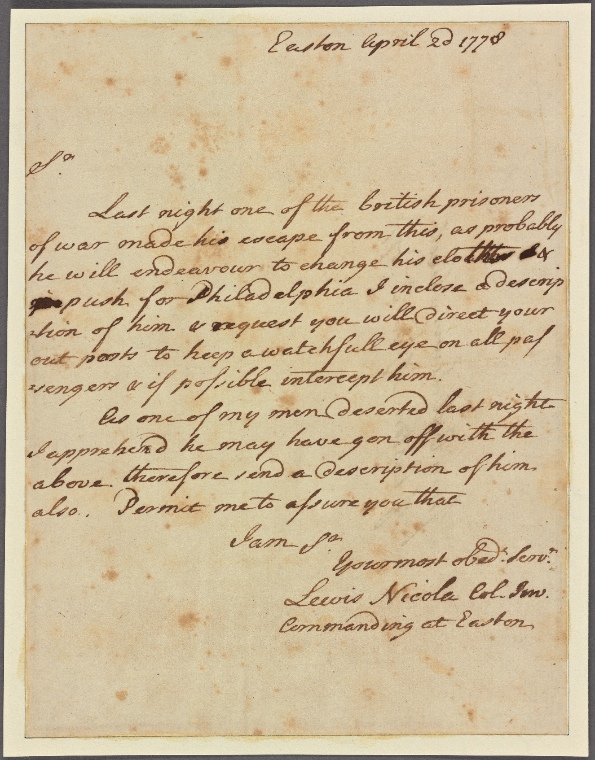 Easton April 2d 1778
Sr
Last night one of the british prisoners
of war made his escape from this, as probably
he will endeavour to change his cloths &
push for Philadelphia I inclose a descrip
-tion of him & request you will direct your
out posts to keep a watchfull eye on all pas
-sengers & if possible intercept him.
As one of my men deserted last night
I apprehend he may have gon off with the
above therefore send a description of him
also. Permit me to assure you that
I am Sr
Your most obedt. Servt.
Lewis Nicola Col. Inv.
Commanding at Easton